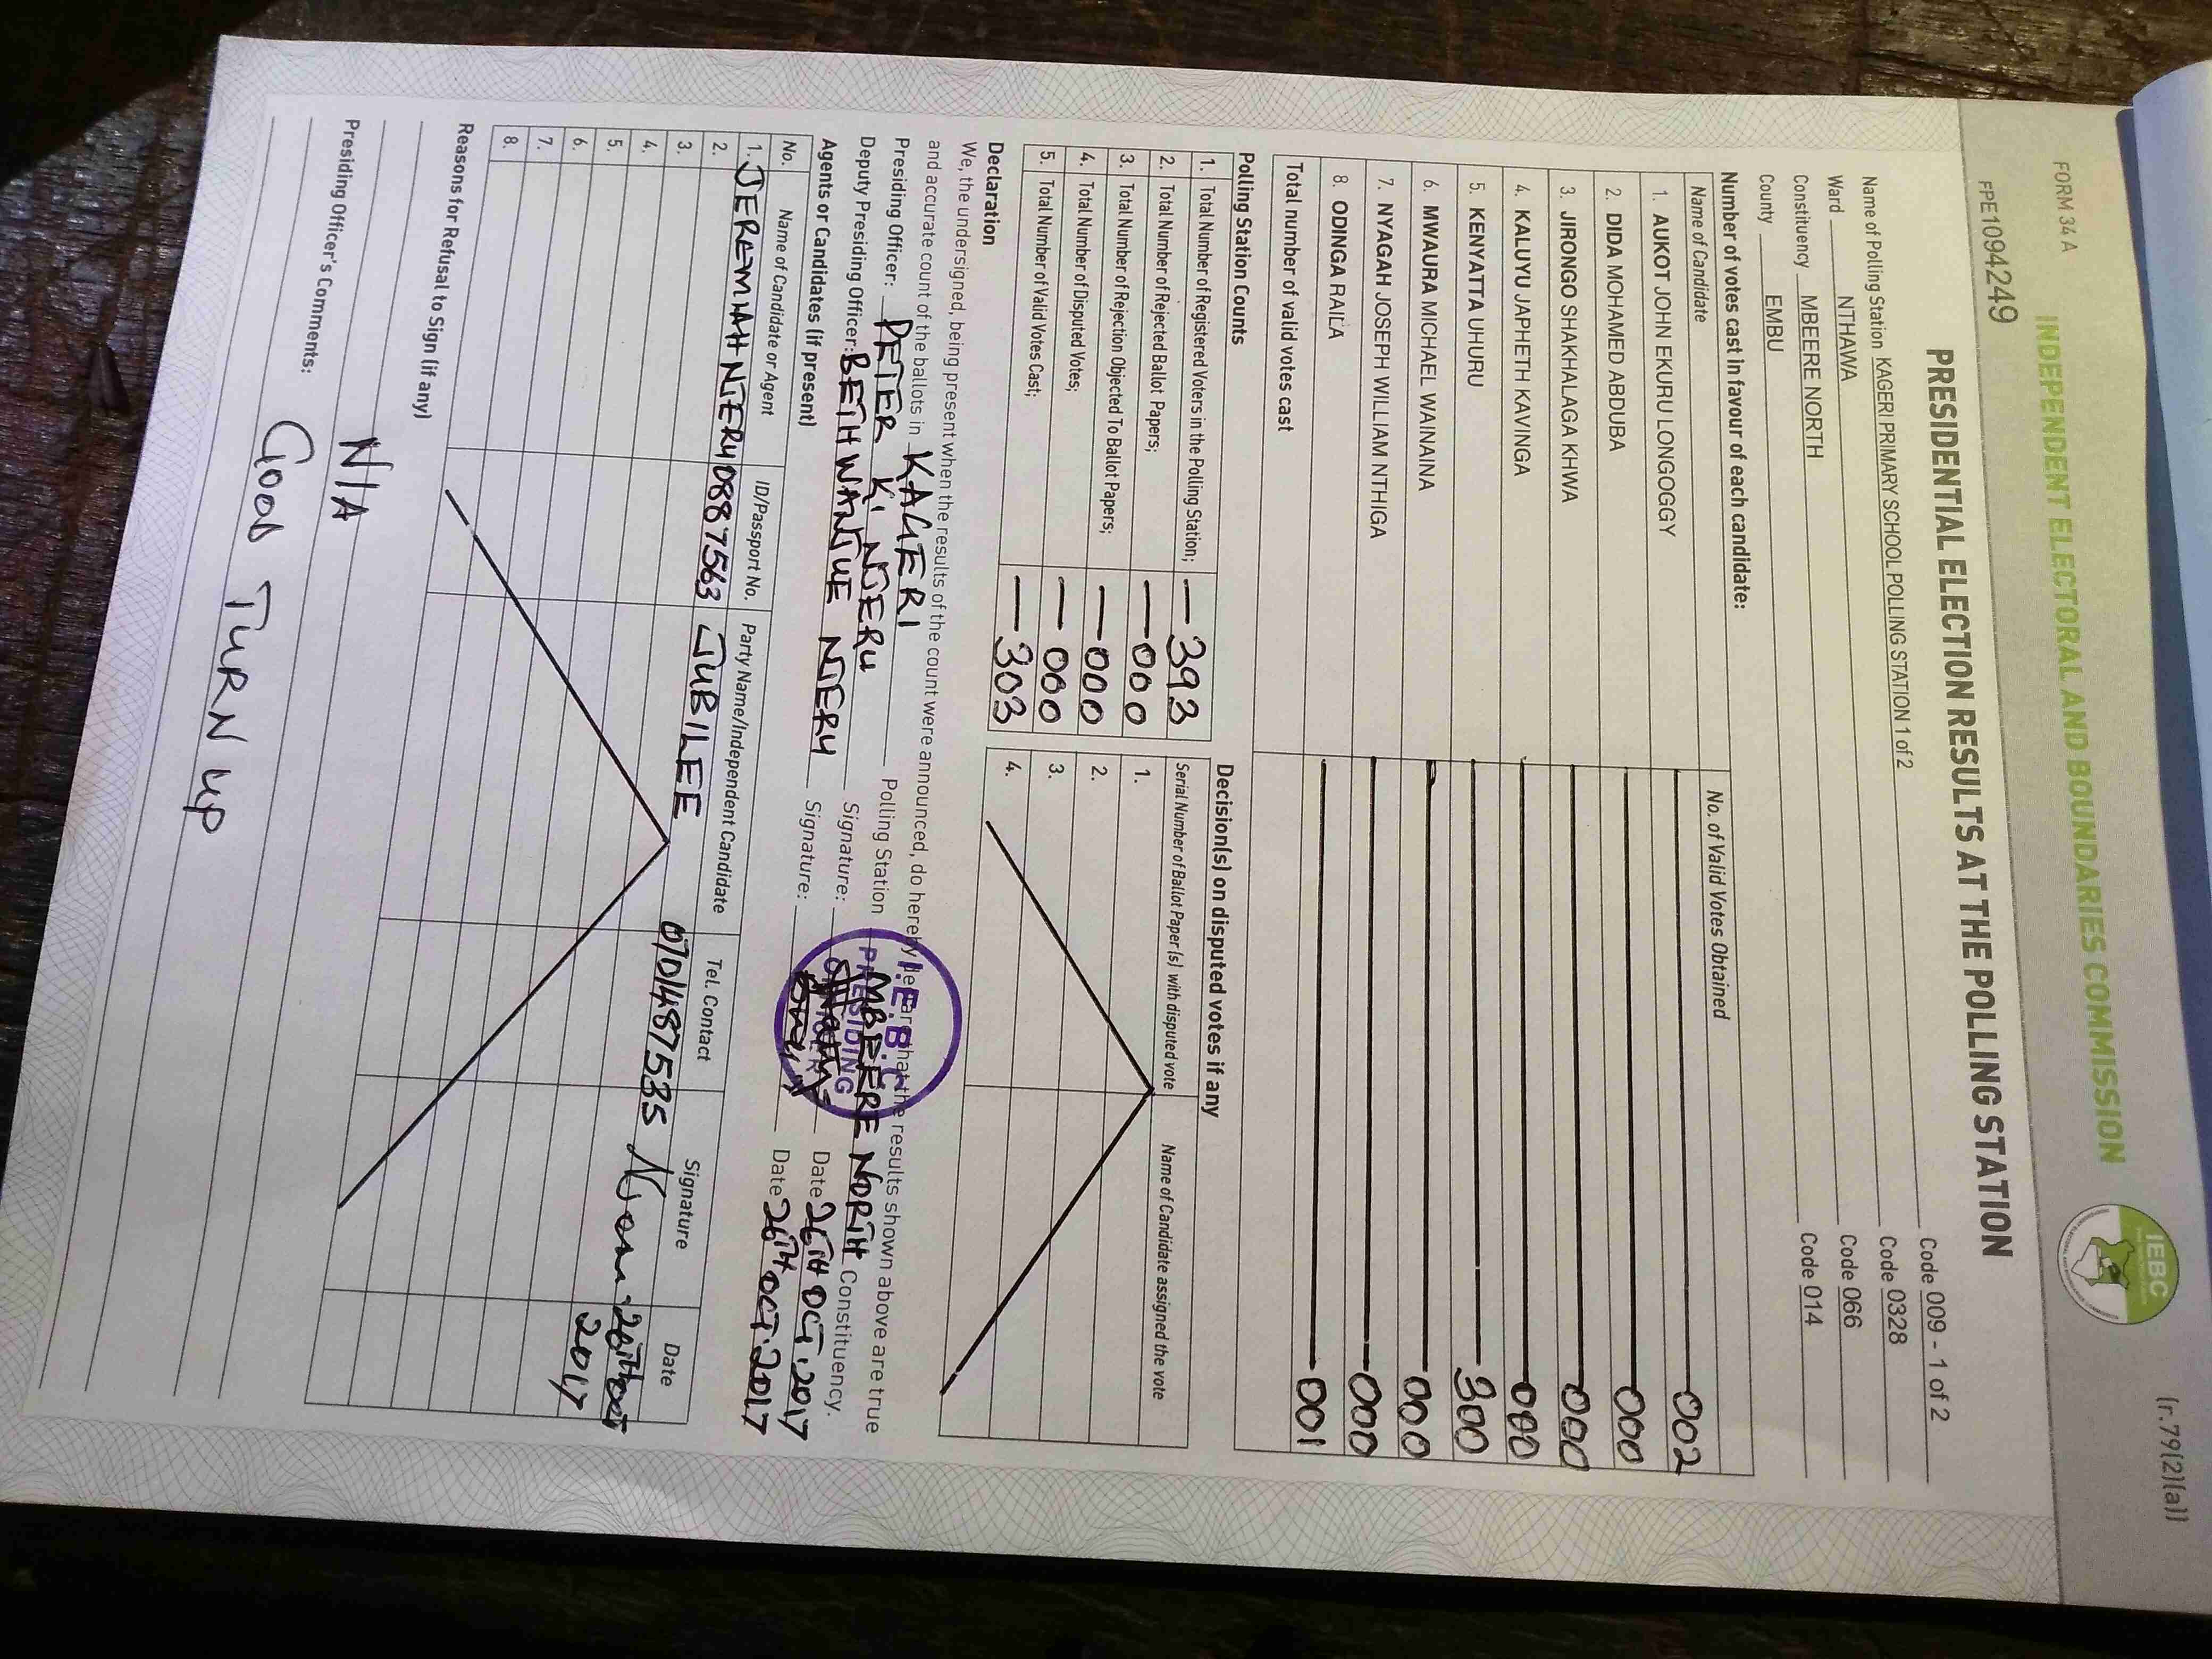 FORM 34 A
(r.79(2)(a))
INDEPENDENT ELECTORAL AND BOUNDARIES COMMISSION
IEBC
FPE1094249
PRESIDENTIAL ELECTION RESULTS AT THE POLLING STATION
Name of Polling Station KAGERI PRIMARY SCHOOL POLLING STATION 1 of 2 Code 009 - 1 of 2
Ward NTHAWA Code 0328
Constituency MBEERE NORTH Code 066
County EMBU Code 014
Number of votes cast in favour of each candidate:
Name of Candidate No. of Valid Votes Obtained
1. AUKOT JOHN EKURU LONGOGGY 002
2. DIDA MOHAMED ABDUBA 000
3. JIRONGO SHAKHALAGA KHWA 000
4. KALUYU JAPHETH KAVINGA 000
5. KENYATTA UHURU 300
6. MWAURA MICHAEL WAINAINA 000
7. NYAGAH JOSEPH WILLIAM NTHIGA 000
8. ODINGA RAILA 001
Total number of valid votes cast
Polling Station Counts
1. Total Number of Registered Voters in the Polling Station; 393
2. Total Number of Rejected Ballot Papers; 000
3. Total Number of Rejection Objected To Ballot Papers; 000
4. Total Number of Disputed Votes; 000
5. Total Number of Valid Votes Cast; 303
Decision(s) on disputed votes if any
Serial Number of Ballot Paper(s) with disputed vote Name of Candidate assigned the vote
1.
2.
3.
4.
Declaration
We, the undersigned, being present when the results of the count were announced, do hereby declare that the results shown above are true
and accurate count of the ballots in KAGERI Polling Station MBEERE NORTH Constituency.
Presiding Officer: PETER K. NJERU Signature: Date 26TH OCT. 2017
Deputy Presiding Officer: BETH WANJUE NJERU Signature: Date 26TH OCT. 2017
I.E.B.C
PRESIDING
OFFICER
Agents or Candidates (if present)
No. Name of Candidate or Agent ID/Passport No. Party Name/Independent Candidate Tel. Contact Signature Date
1. JEREMIAH NJERU 0887563 JUBILEE 0701487535 26TH OCT
2017
2.
3.
4.
5.
6.
7.
8.
Reasons for Refusal to Sign (if any)
N/A
Presiding Officer's Comments:
GOOD TURN UP